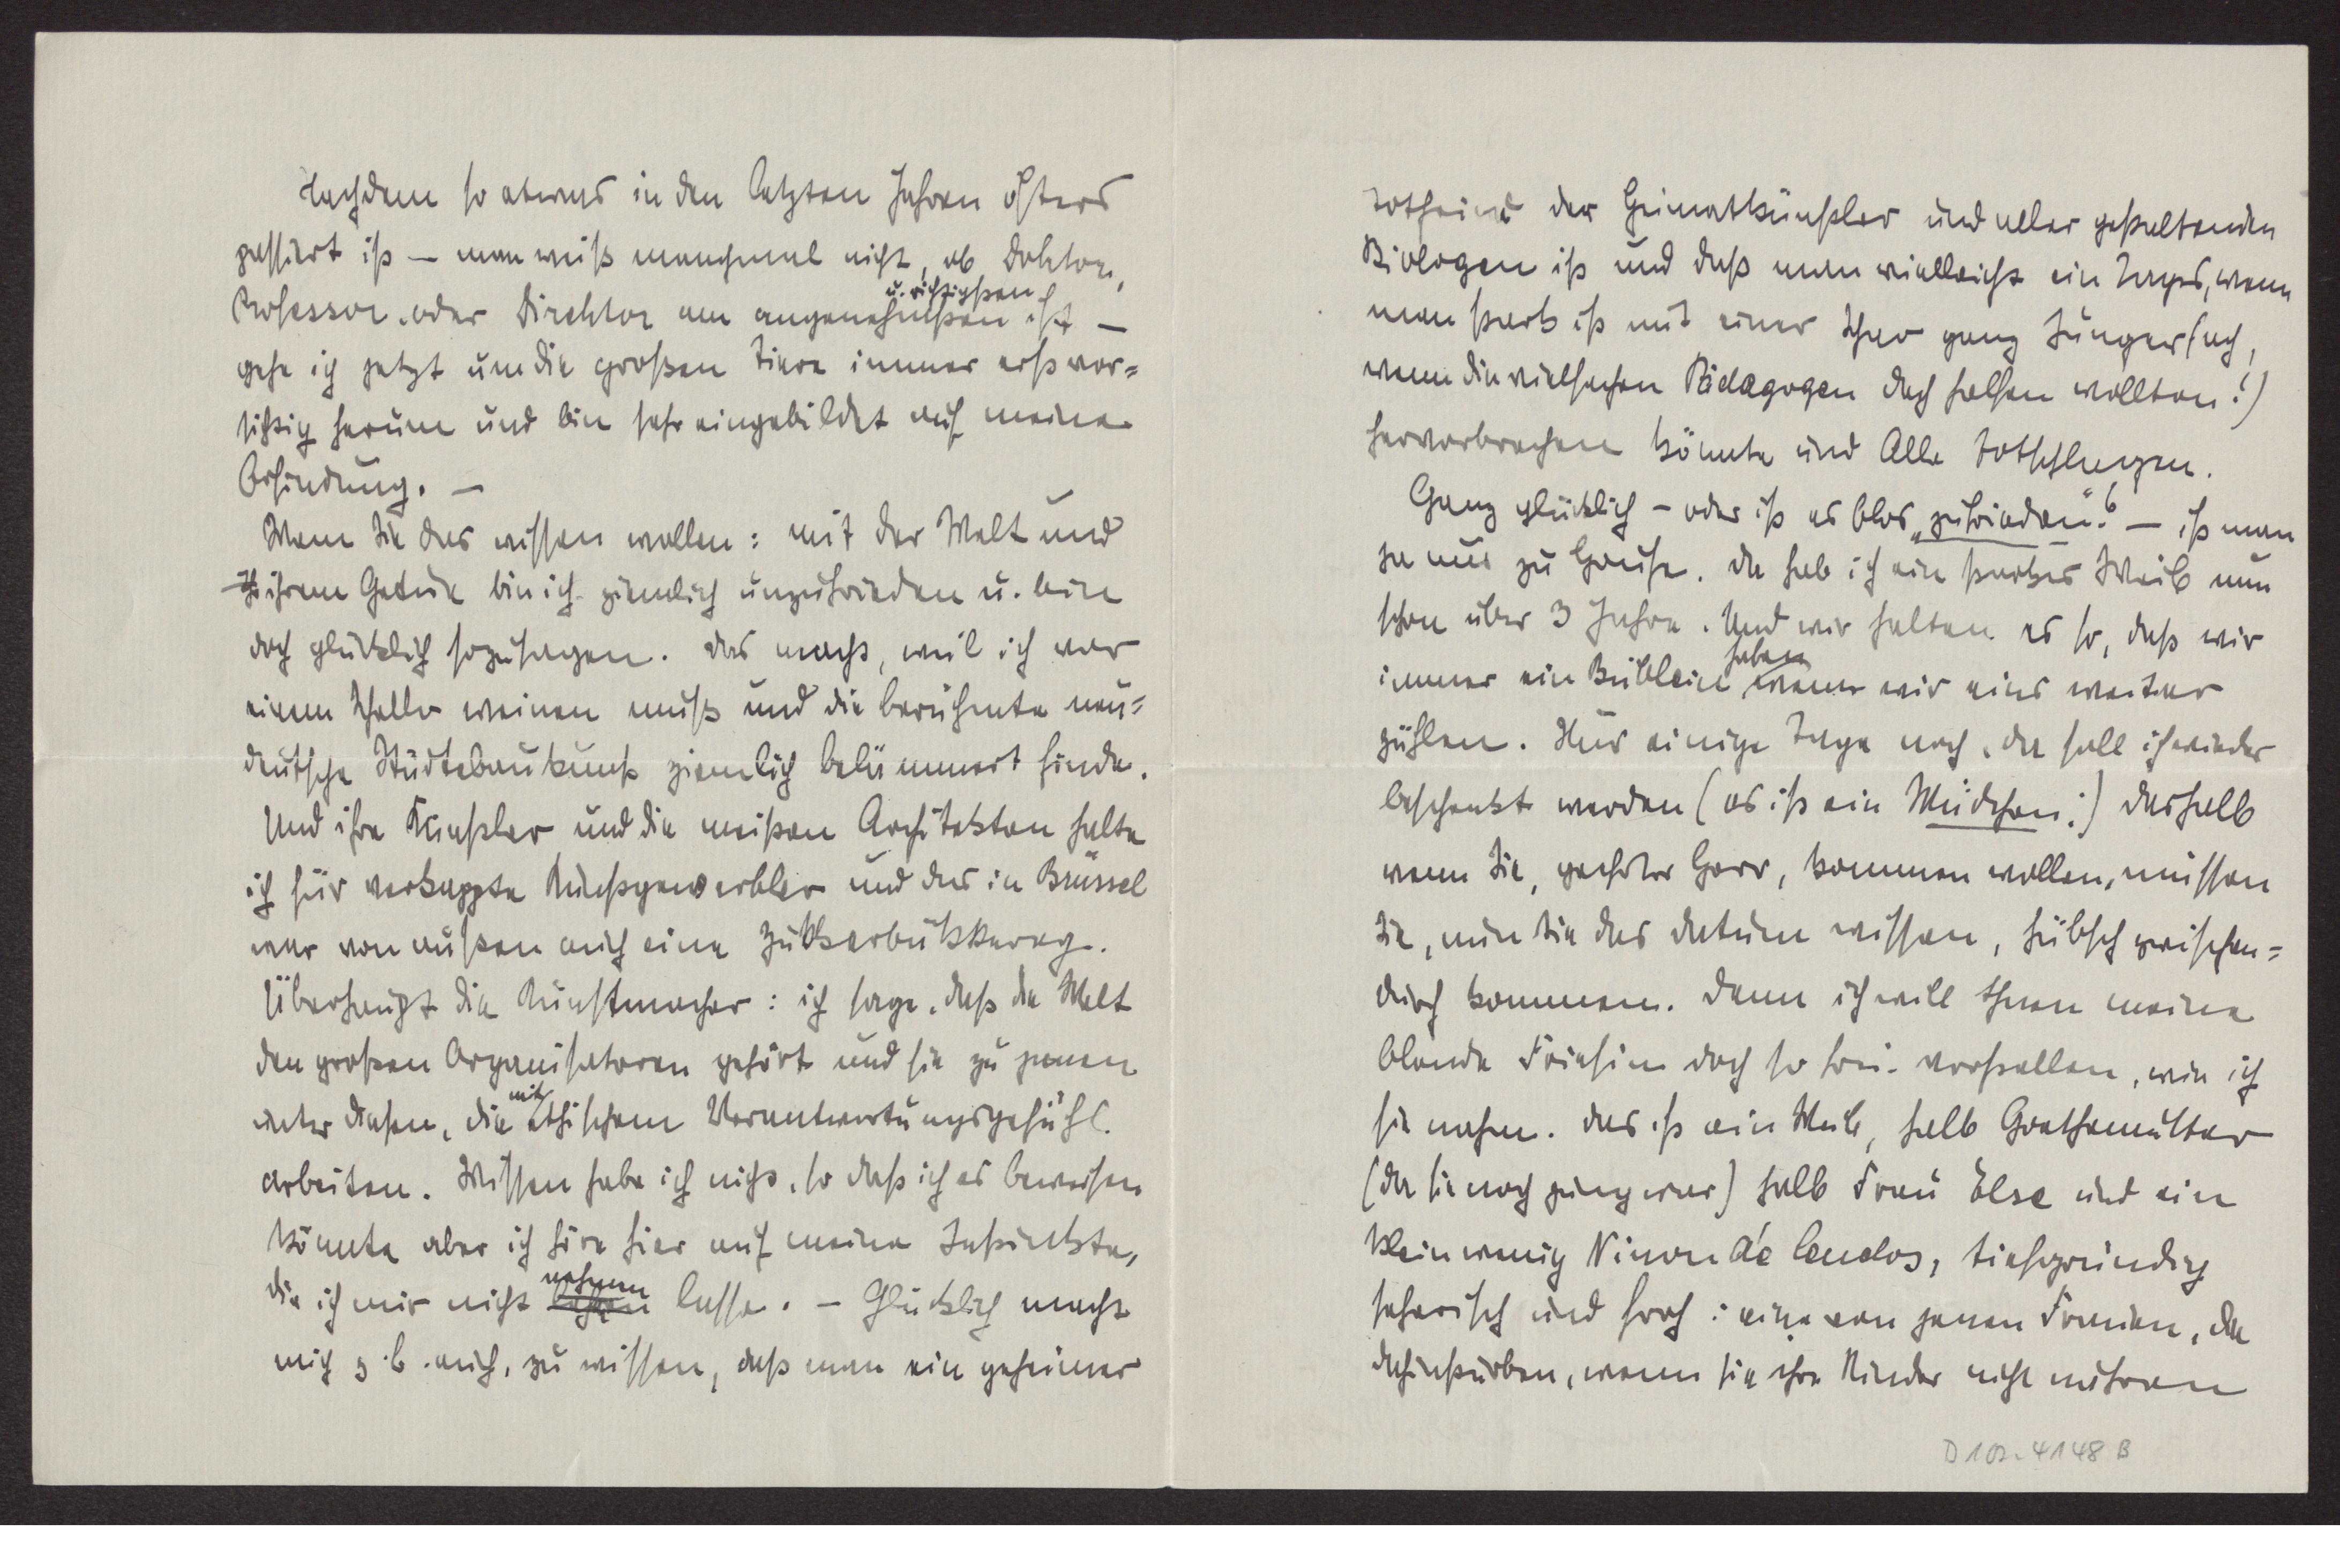 Nachdem so etwas in den letzten Jahren öfters
passiert ist – man weiß manchmal nicht, ob Doktor,
u. richtigsten
Professor oder Direktor am angenehmsten ist –
gehe ich jetzt um die großen Tiere immer erst vor=
sichtig herum und bin sehr eingebildet auf meine
Erfindung. –
Wenn Sie das wissen wollen: mit der Welt und
ihrem Getue bin ich ziemlich unzufrieden u. bin
doch glücklich sozusagen. Das macht, weil ich vor
einem weinen muß und die berühmte neu=
deutsche Städtebaukunst ziemlich belämmert finde.
Und ihre Künstler und die meisten Architekten halte
ich für verkappte Kunstgewerbler und das in Brüssel
war von außen auch eine Zukkerbäkkerey.
Überhaupt die Kunstmacher: ich sage, daß die Welt
den großen Organisatoren gehört und sie zu jenen
mit
unter diesen, die ethischem Verantwortungsgefühl
arbeiten. Wissen habe ich nicht, so daß ich es beweisen
könnte aber ich höre hier auf meine Instinkte,
nehmen
die ich mir nicht lasse. – Glücklich macht
mich z.b. auch, zu wissen, daß man ein geheimer
Totfeind der Heimatkünstler und aller gestaltenden
Biologen ist und daß man vielleicht ein Tages, wenn
man stark ist mit einer Schar ganz Junger (ach,
wenn die vielfachen Pädagogen doch helfen wollten!)
hervorbrechen könnte und Alle totschlagen.
Ganz glücklich – oder ist es blos „zufrieden“? – ist man
ja nur zu Hause. Da hab ich ein starkes Weib nun
schon über 3 Jahre. Und wir halten es so, daß wir
haben
immer ein Büblein wenn wir eins weiter
zählen. Nur einige Tage noch, da soll ich wieder
beschenkt werden (es ist ein Mädchen!) deshalb
wenn Sie, geehrter Herr, kommen wollen, müssen
Sie, nun Sie das Datum wissen, hübsch zwischen=
durch kommen. Denn ich will Ihnen meine
blonde Friesin doch so frei vorstellen, wie ich
sie nahm. Das ist ein Weib, halb Goethemutter
(da sie noch jung war) halb Frau Else und ein
klein wenig Ninon de Lenclos, tiefgründig
seherisch und froh: eine von jenen Frauen, die
dahinstürben, wenn sie ihre Kinder nicht nähren
D 102-4148 B